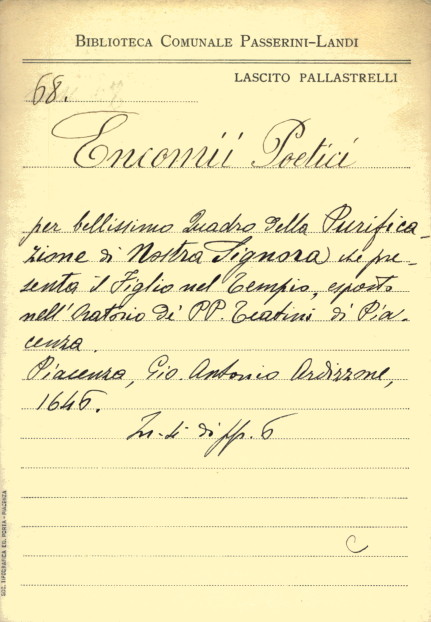 BIBLIOTECA COMUNALE PASSERINI-LANDI
LASCITO PALLASTRELLI
68.
Encomii Poetici
per bellissimo Quadro della Purifica-
zione di Nostra Signora che pre-
senta il Figlio nel Tempio, esposto
nell'Oratorio de' PP. Teatini di Pia-
cenza.
Piacenza, Gio. Antonio Ardizzone,
1646.
In-4 di pp. 6
C
SOC. TIPOGRAFICA ED. PORTA - PIACENZA